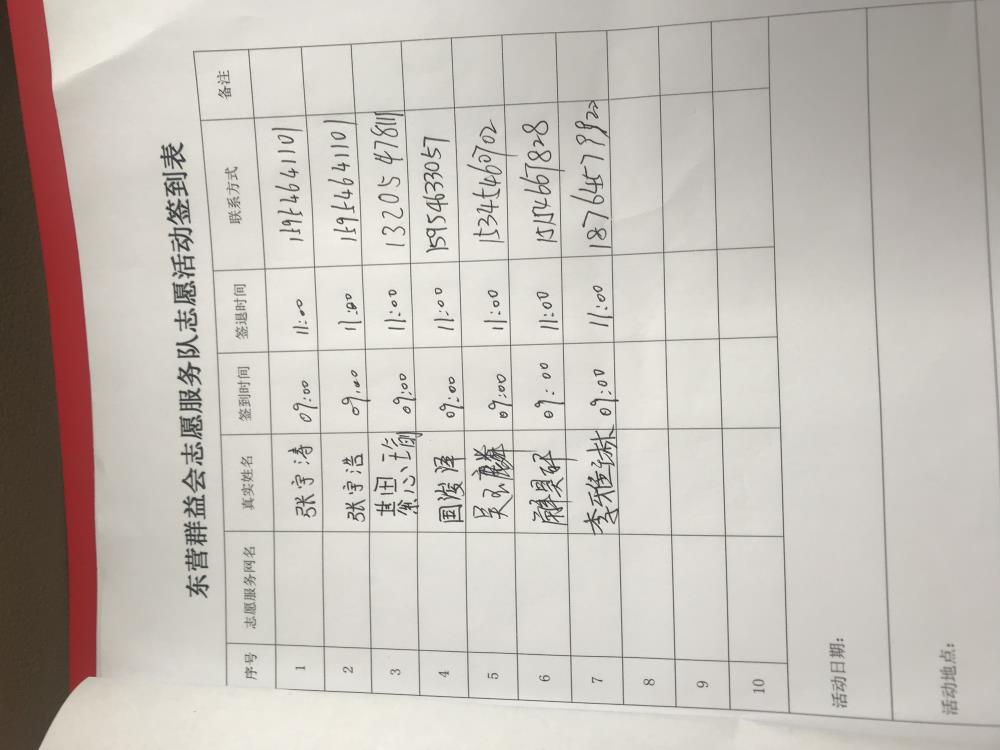 东营群益会志愿服务队志愿活动签到表
序号 志愿服务网名 真实姓名 签到时间 签退时间 联系方式 备注
1 张宇涛 09:00 11:00 15954641101
2 张宇浩 09:00 11:00 15954641101
3 09:00 11:00 13205478111
4 国浚泽 09:00 11:00 15954633057
5 吴 09:00 11:00 15345460702
6 09:00 11:00 15154667828
7 李 09:00 11:00 18764579922
8
9
10
活动日期:
活动地点: